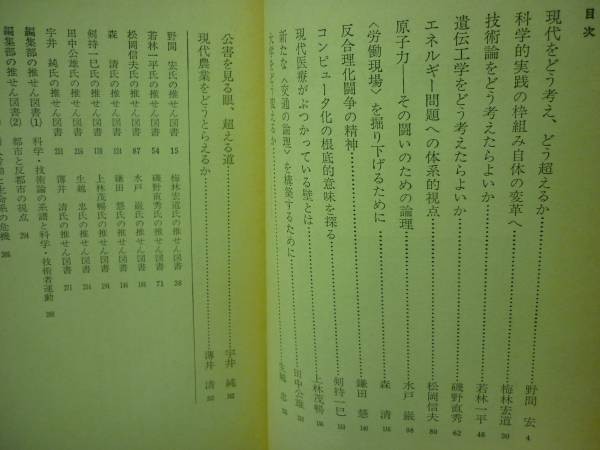 目次
現代をどう考え、どう超えるか 野間 宏 4
科学的実践の枠組み自体の変革へ 梅林宏道 30
技術論をどう考えたらよいか 若林一平 46
遺伝工学をどう考えたらよいか 磯野直秀 62
エネルギー問題への体系的視点 松岡信夫 80
原子力──その闘いのための論理 水戸 巌 98
〈労働現場〉を掘り下げるために 森 清
反合理化闘争の精神 鎌田 慧
コンピュータ化の根底的意味を探る 剣持一巳
現代医療がぶつかっている壁とは 上林茂暢
新たな〈交通の論理〉を構築するために 田中公雄
大学をどう超えるか 生越 忠
公害を見る眼、超える道 宇井 純
現代農業をどうとらえるか 薄井 清
野間 宏氏の推せん図書 15
梅林宏道氏の推せん図書 38
若林一平氏の推せん図書 54
磯野直秀氏の推せん図書 73
松岡信夫氏の推せん図書 87
水戸 巌氏の推せん図書
森 清氏の推せん図書
鎌田 慧氏の推せん図書
剣持一巳氏の推せん図書
上林茂暢氏の推せん図書
田中公雄氏の推せん図書
生越 忠氏の推せん図書
宇井 純氏の推せん図書
薄井 清氏の推せん図書
編集部の推せん図書(1) 科学・技術論の系譜と科学・技術者運動
編集部の推せん図書(2) 都市と反都市の視点
編集部の推せん図書